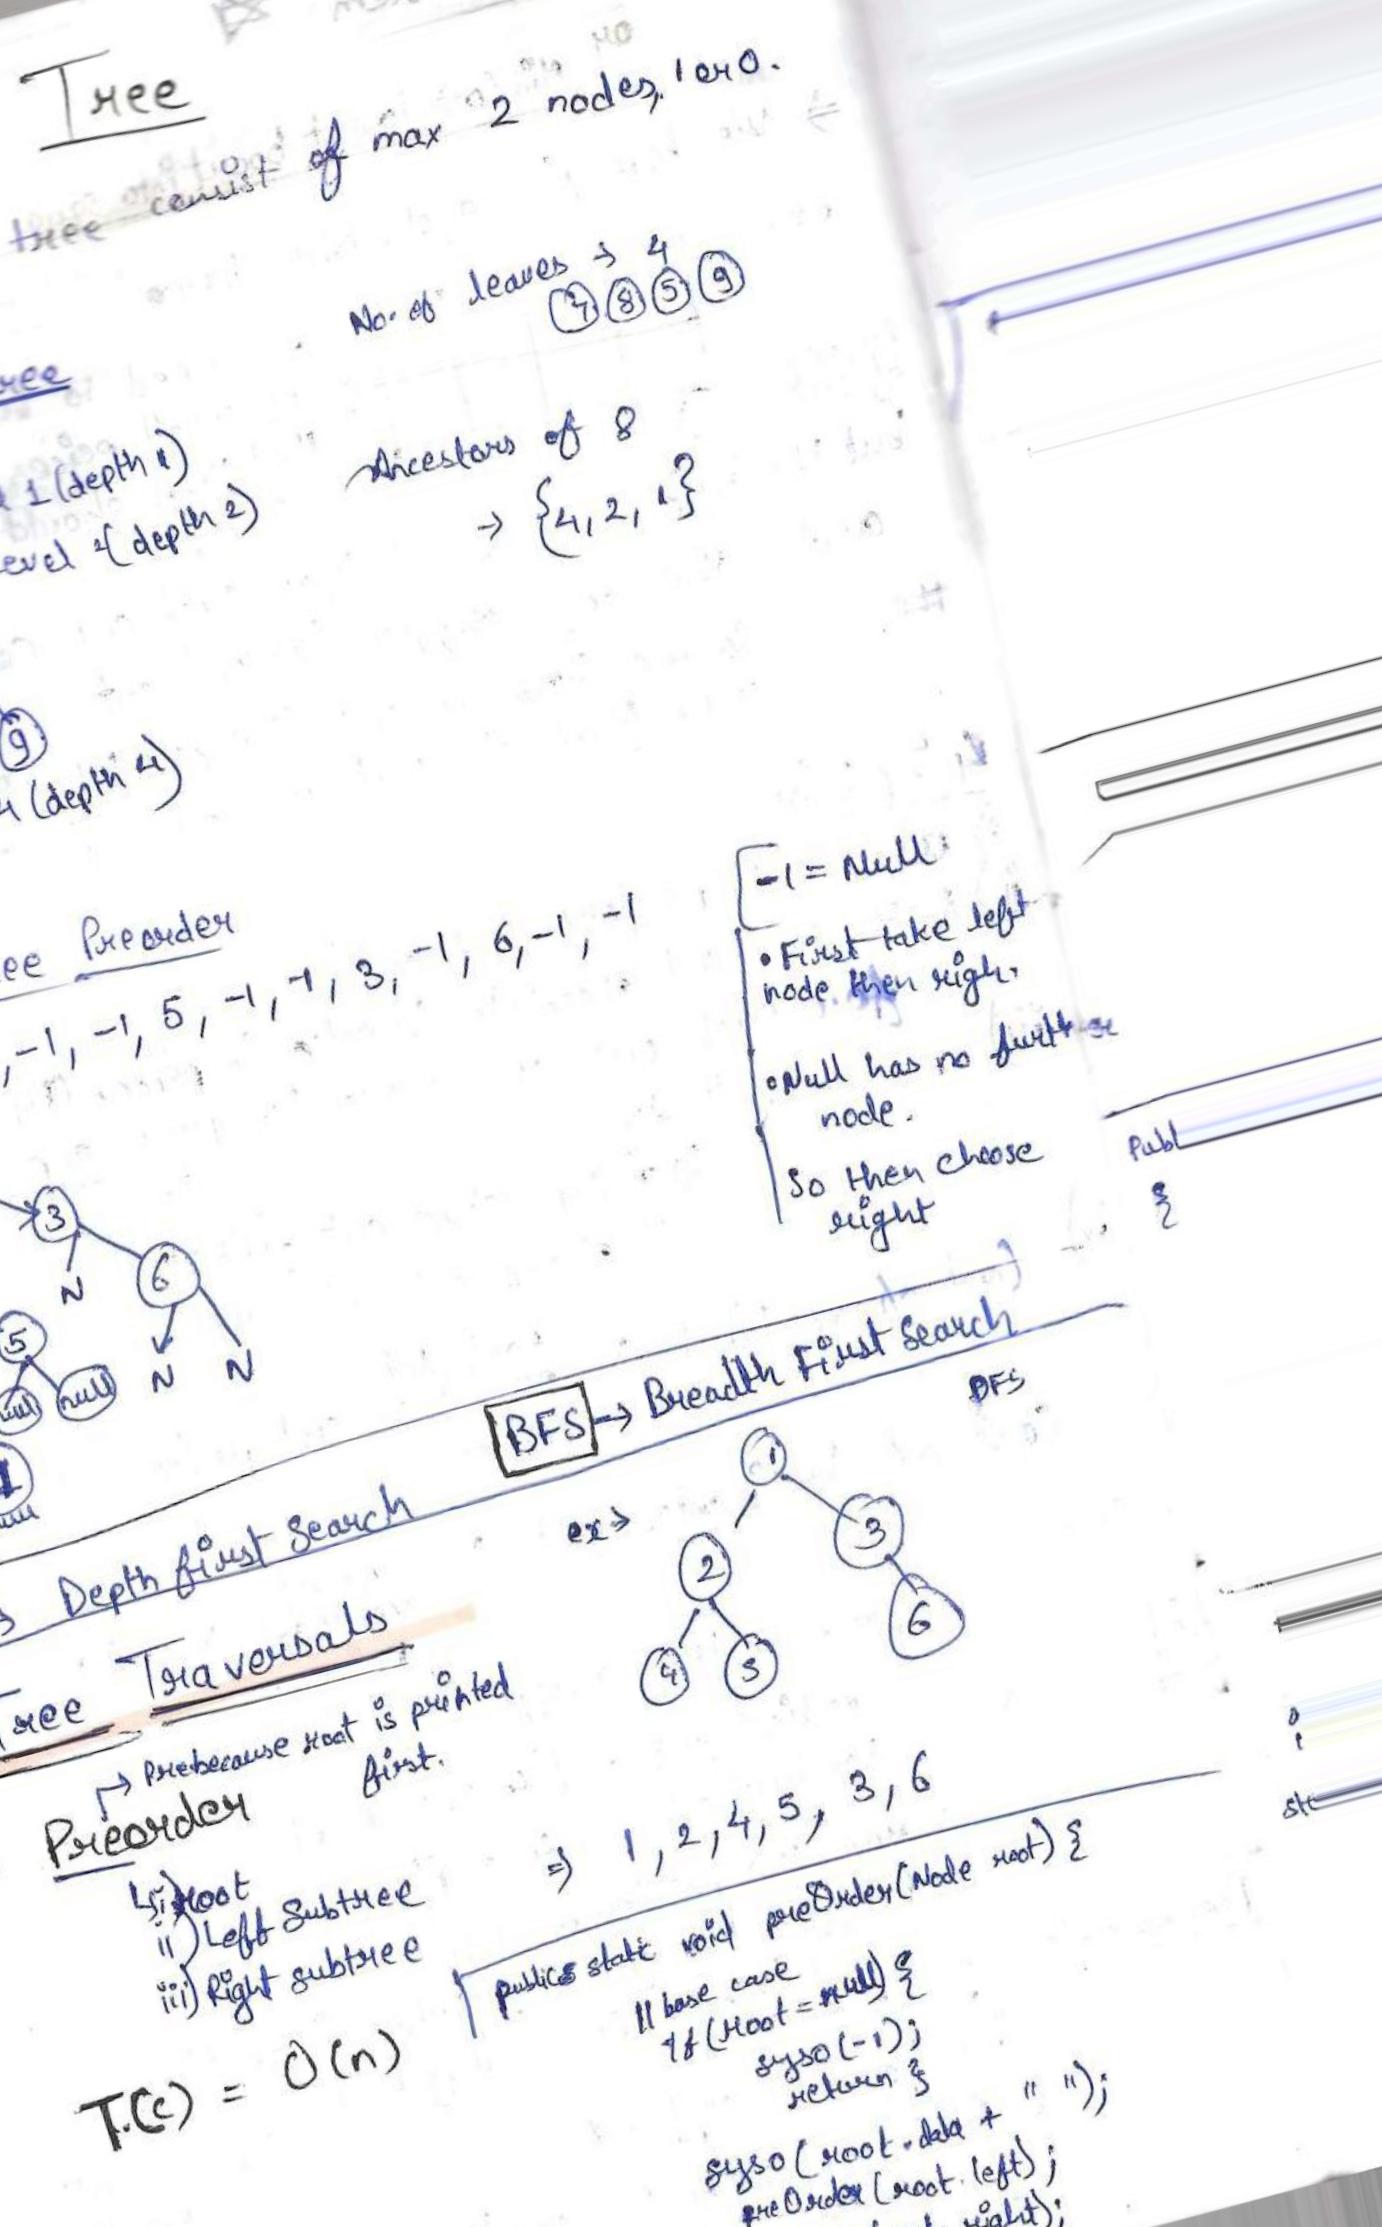 Tree
tree consist of max 2 nodes, 1 or 0.
No. of leaves → 4
7 8 5 9
ree
1 (depth 1)
evel 2 (depth 2)
Ancestors of 8
→ {4, 2, 1}
9
4 (depth 4)
ee Preorder
, -1, -1, 5, -1, -1, 3, -1, 6, -1, -1
-1 = Null
• First take left
node then righ.
• Null has no further
node.
So then choose
right
3
N
6
5
null
N N
BFS → Breadth First Search
DFS
Depth first Search
ex →
1
2 3
4 5 6
Tree Traversals
→ Prebecause root is printed
first.
Preorder
i) root
ii) Left Subtree
iii) Right subtree
⇒ 1, 2, 4, 5, 3, 6
T.(c) = O(n)
public static void preOrder(Node root) {
// base case
if (root = null) {
syso(-1);
return }
syso(root.data + " ");
preOrder(root.left);
right);
Publ
{